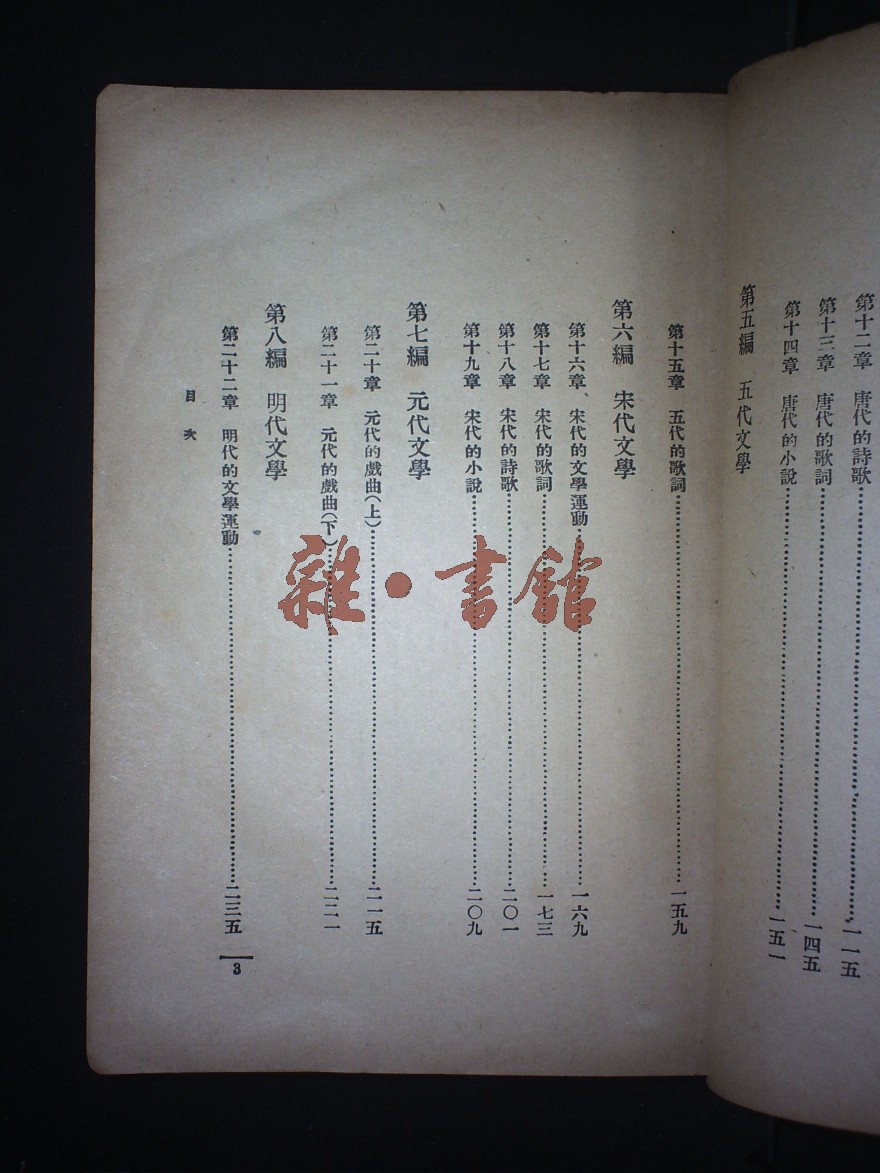 第十二章　唐代的詩歌……一一五
第十三章　唐代的歌詞……一四五
第十四章　唐代的小說……一五一
第五編　五代文學
第十五章　五代的歌詞……一五九
第六編　宋代文學
第十六章　宋代的文學運動……一六九
第十七章　宋代的歌詞……一七三
第十八章　宋代的詩歌……二〇一
第十九章　宋代的小說……二〇九
第七編　元代文學
第二十章　元代的戲曲(上)……二一五
第二十一章　元代的戲曲(下)……二二一
第八編　明代文學
第二十二章　明代的文學運動……二三五
目次
3
雜·書館